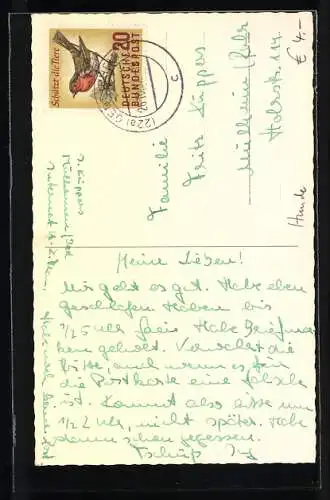 Schützt die Tiere
20
DEUTSCHE
BUNDESPOST
(22a)
c
Familie
Fritz Küppers
Mülheim/Ruhr
€ 4.-
Hunde
Küppers
Meine Lieben!
Mir geht es gut. Habe eben
geschlafen haben bis
1/2 5 Uhr frei. Habe Briefmar-
ken geholt. Verwahrt die
bitte, auch wenn es für
die Postkarte eine falsche
ist. Kommt also bitte um
1/2 2 Uhr, nicht später. Habe
dann schon gegessen.
Tschüß